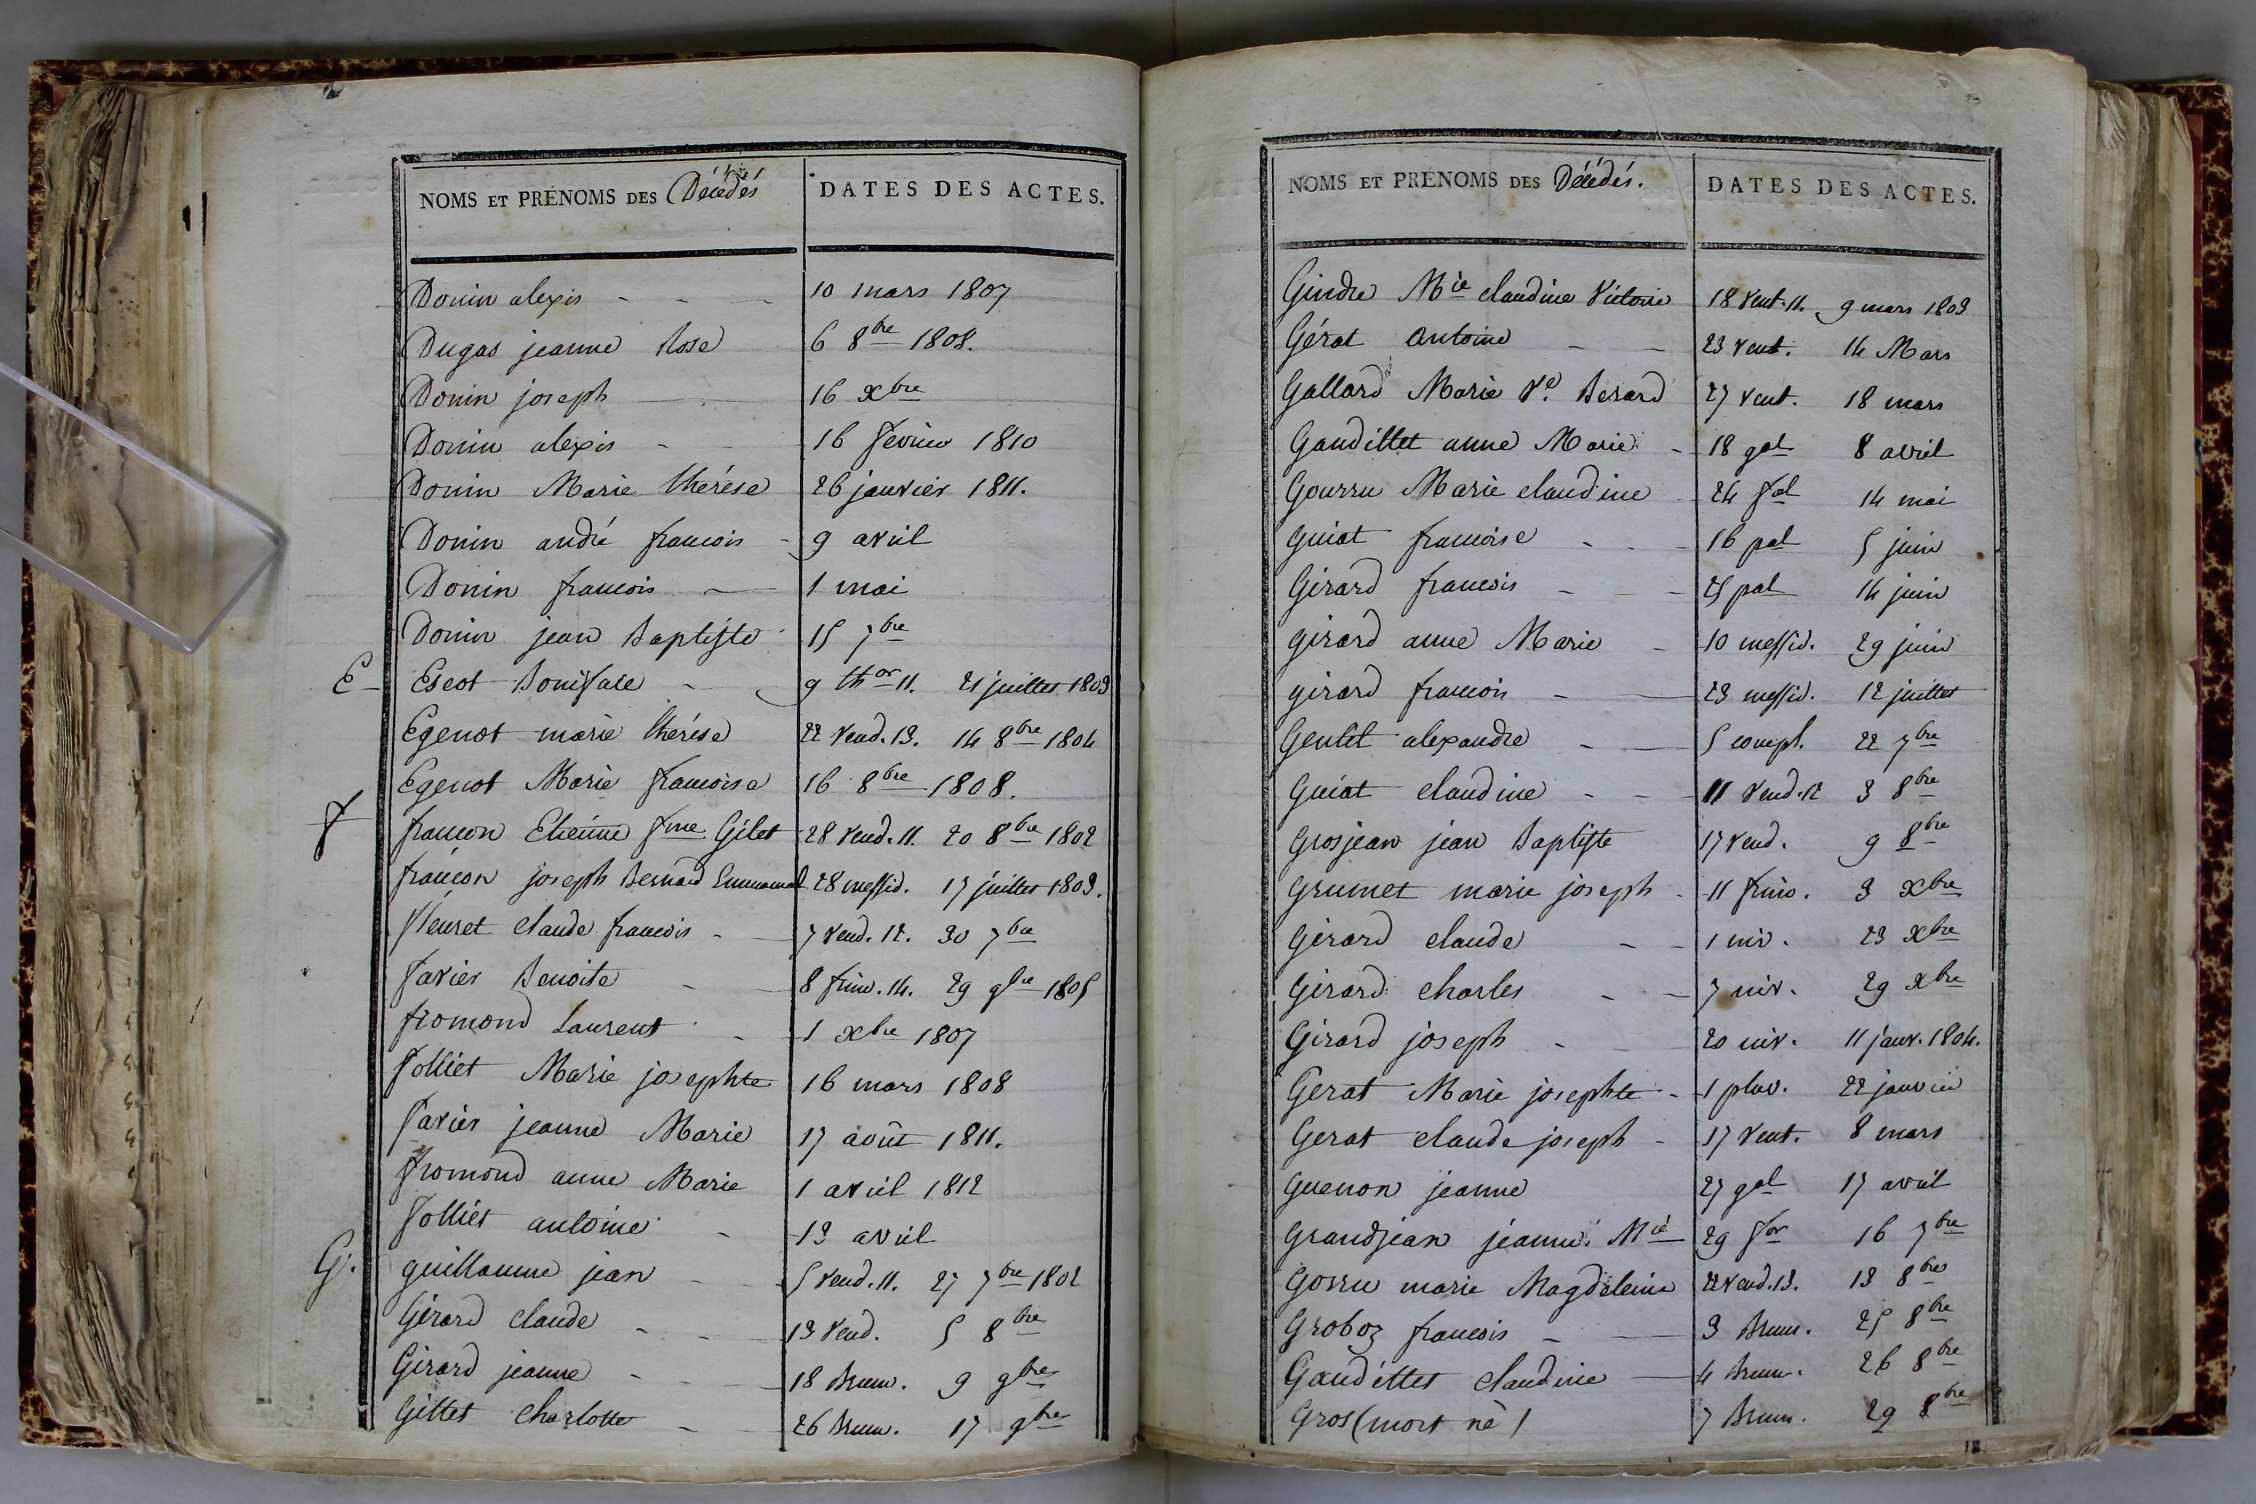 NOMS ET PRÉNOMS DES Décédés
DATES DES ACTES.
Donin alexis - - - 10 mars 1807
Dugas jeanne Rose 6 8bre 1808.
Donin joseph 16 xbre
Donin alexis - 16 fevrier 1810
Donin Marie thérèse 26 janvier 1811.
Donin andré francois - 9 avril
Donin francois - 1 mai
Donin jean Baptiste 15 7bre
E Escot Boniface - 9 thor 11. 21 juillet 1803
Egenot marie thérèse 22 vend. 13. 14 8bre 1804
Egenot Marie francoise 16 8bre 1808.
f francon Etienne fme Gilet 28 vend. 11. 20 8bre 1802
francon joseph Bernard Emmanuel 28 messid. 17 juillet 1803.
fleuret claude francois - 7 vend. 12. 30 7bre
favier Benoite - - 8 frim. 14. 29 9bre 1805
fromond Laurent - 1 xbre 1807
folliet Marie josephte 16 mars 1808
favier jeanne Marie 17 août 1811.
fromond anne Marie 1 avril 1812
folliet antoine - 13 avril
G. guillaume jean - 5 vend. 11. 27 7bre 1802
Gérard claude - - 13 vend. 5 8bre
Girard jeanne - - 18 Brum. 9 9bre
Gillet charlotte - 26 Brum. 17 9bre
NOMS ET PRÉNOMS DES Décédés.
DATES DES ACTES.
Gindre Mie claudine Victoire 18 vent. 11. 9 mars 1803
Gérat antoine - - 23 vent. 14 Mars
Gallard Marie Ve. Berard 27 vent. 18 mars
Gaudillet anne Marie - 18 gal 8 avril
Gourru Marie claudine 24 fal 14 mai
Guiat francoise - - - 16 pal 5 juin
Girard francois - - - 25 pal 14 juin
girard anne Marie - 10 messid. 29 juin
girard francois - - 23 messid. 12 juillet
Gentet alexandre - - 5 compl. 22 7bre
Guiat claudine - - 11 vend. 12 3 8bre
Grosjean jean Baptiste 17 vend. 9 8bre
Grumet marie joseph - 11 frim. 3 xbre
Girard claude - - 1 niv. 23 xbre
Girard charles - - 7 niv. 29 xbre
Girard joseph - 20 niv. 11 janv. 1804.
Gerat Marie josephte - 1 pluv. 22 janvier
Gerat claude joseph - 17 vent. 8 mars
Guenon jeanne 27 gal 17 avril
Grandjean jeanne Mie 29 for 16 7bre
Gorru marie Magdeleine 21 vend. 13. 13 8bre
Groboz francois - 3 Brum. 25 8bre
Gaudillet claudine - 4 Brum. 26 8bre
Gros (mort né) 7 Brum. 29 8bre